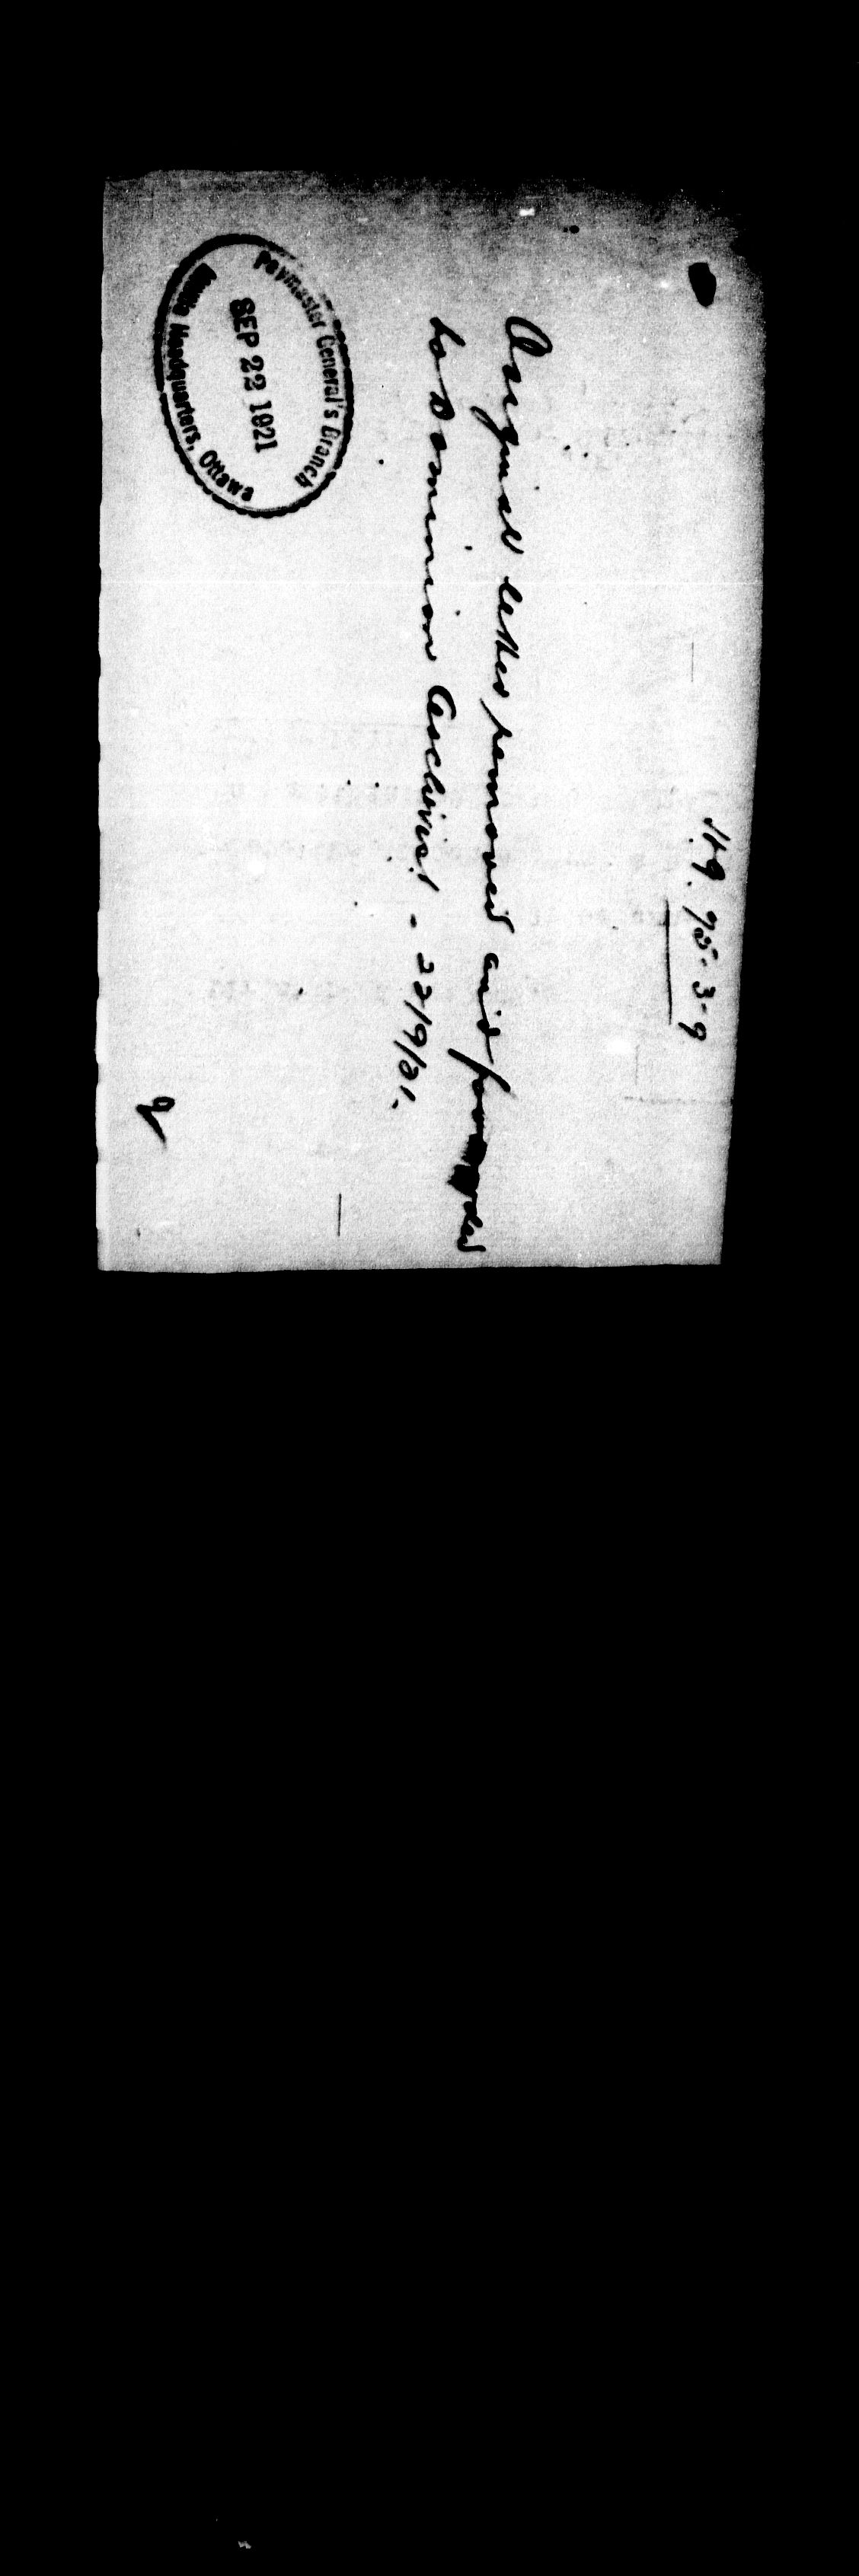 HQ. 75-3-9
Original letter removed and forwarded
to Dominion Archivist - 22/9/21.
Paymaster General's Branch
SEP 22 1921
Militia Headquarters, Ottawa